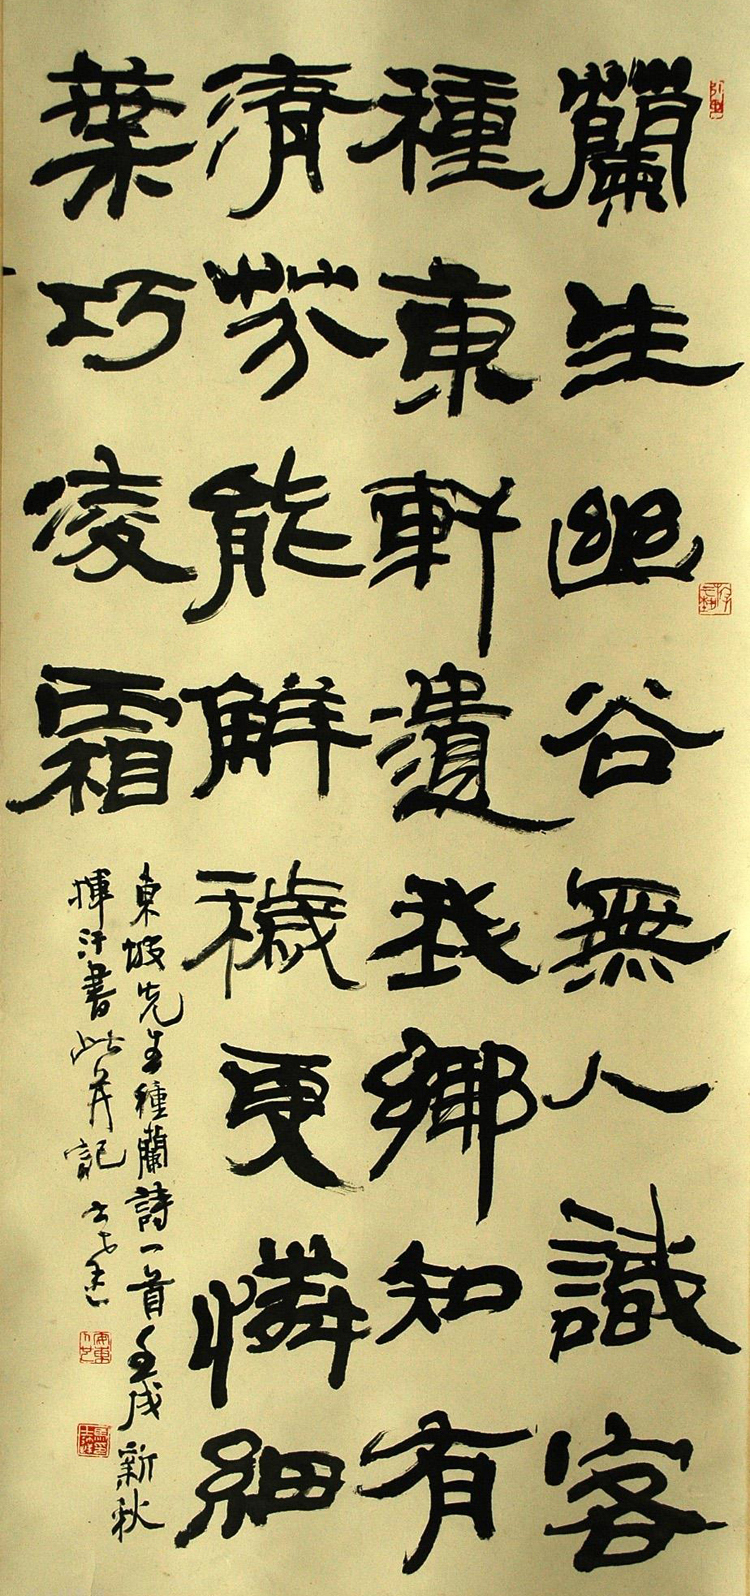 蘭生幽谷無人識客
種東軒遺我鄉知有
清芬能解穢更憐細
葉巧凌霜
東坡先生種蘭詩一首壬戌新秋
揮汗書此并記